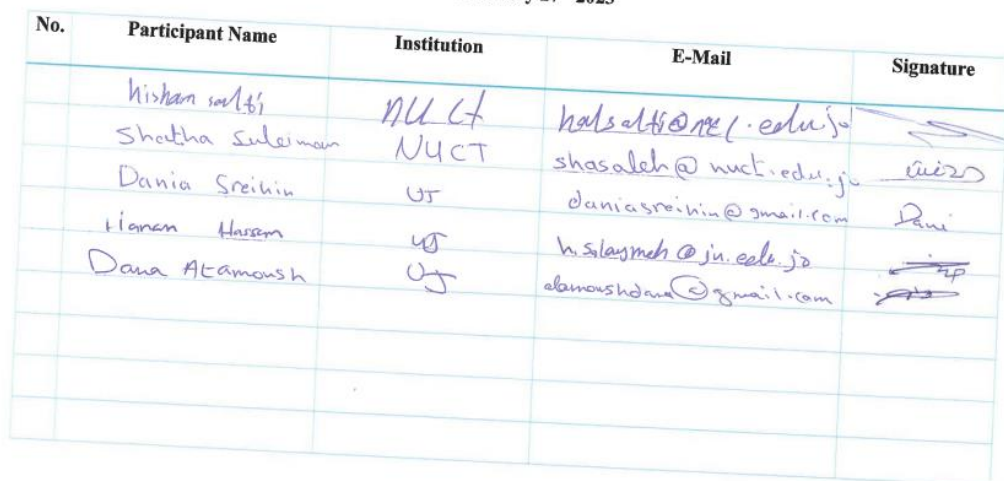 2023
No. Participant Name Institution E-Mail Signature
hisham salti NUCT
Shatha Suleiman NUCT shasaleh@nuct.edu.jo
Dania Sreihin UJ daniasreihin@gmail.com Dani
Hanan Hassan UJ h.slaymeh@ju.edu.jo
Dana Alamoush UJ alamoushdana@gmail.com